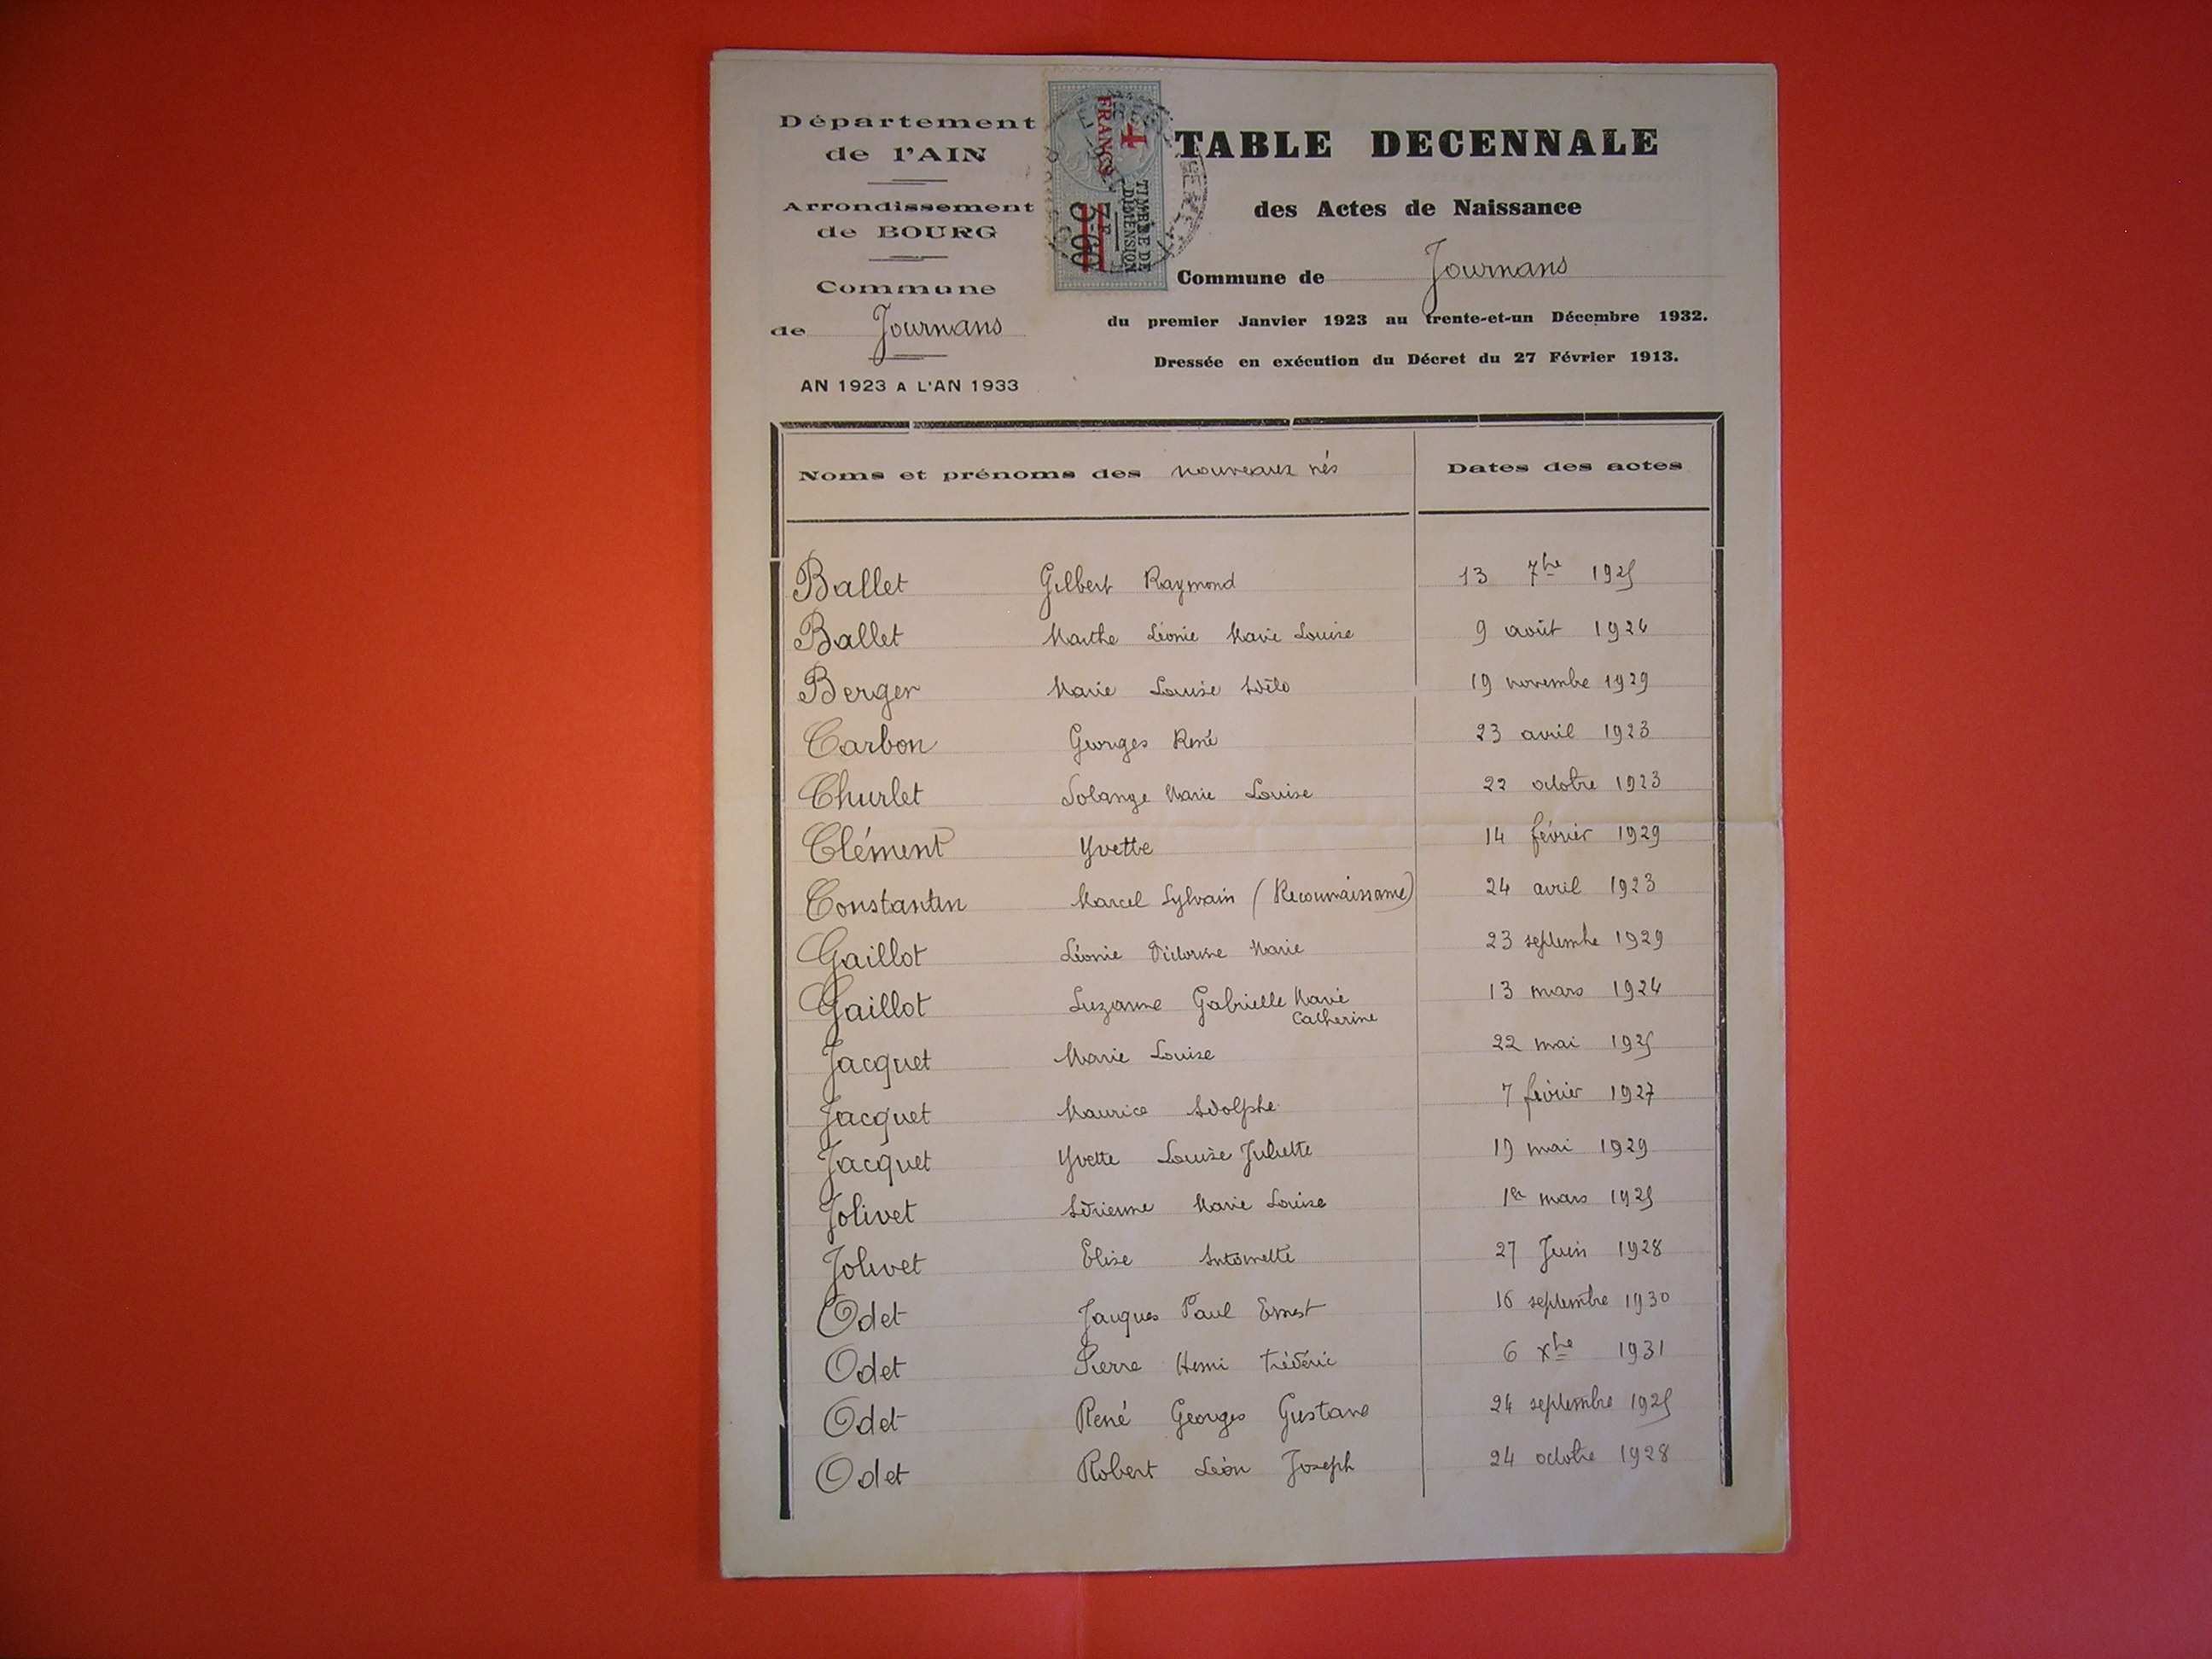 Département
de l'AIN
Arrondissement
de BOURG
Commune
de Journans
AN 1923 A L'AN 1933
4
FRANCS
TIMBRE DE
DIMENSION
TABLE DECENNALE
des Actes de Naissance
Commune de Journans
du premier Janvier 1923 au trente-et-un Décembre 1932.
Dressée en exécution du Décret du 27 Février 1913.
Noms et prénoms des nouveaux nés Dates des actes
Ballet Gilbert Raymond 13 7bre 1925
Ballet Marthe Léonie Marie Louise 9 août 1924
Berger Marie Louise Adèle 19 novembre 1929
Carbon Georges René 23 avril 1923
Churlet Solange Marie Louise 22 octobre 1923
Clément Yvette 14 février 1929
Constantin Marcel Sylvain (Reconnaissance) 24 avril 1923
Gaillot Léonie Victorine Marie 23 septembre 1929
Gaillot Suzanne Gabrielle Marie 13 mars 1924
Catherine
Jacquet Marie Louise 22 mai 1925
Jacquet Maurice Adolphe 7 février 1927
Jacquet Yvette Louise Juliette 19 mai 1929
Jolivet Adrienne Marie Louise 1er mars 1925
Jolivet Elise Antoinette 27 Juin 1928
Odet Jacques Paul Ernest 16 septembre 1930
Odet Pierre Henri Frédéric 6 xbre 1931
Odet René Georges Gustave 24 septembre 1925
Odet Robert Léon Joseph 24 octobre 1928